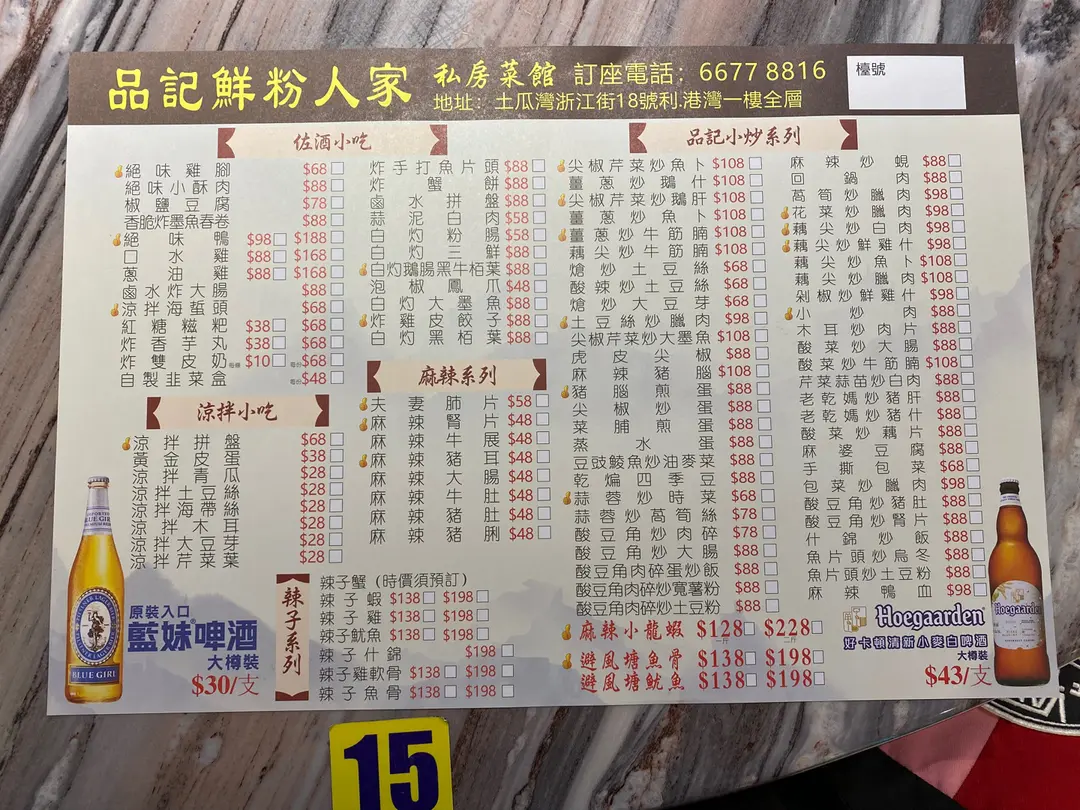 品記鮮粉人家 私房菜館 訂座電話：6677 8816
地址：土瓜灣浙江街18號利.港灣一樓全層
檯號
佐酒小吃
絕味雞腳 $68
絕味小酥肉 $88
椒鹽豆腐 $78
香脆炸墨魚春卷 $88
絕味鴨 $98 $188
口水雞 $88 $168
蔥油雞 $88 $168
鹵水炸大腸 $88
涼拌海蜇頭 $68
紅糖糍粑 $38 $68
炸香芋丸 $38 $68
炸雙皮奶 每條 $10 每份 $68
自製韭菜盒 每份 $48
炸手打魚片頭 $88
炸蟹餅 $88
鹵水拼盤 $88
蒜泥白肉 $58
白灼粉腸 $58
白灼三鮮 $88
白灼鵝腸黑牛栢葉 $88
泡椒鳳爪 $48
白灼大墨魚 $88
炸雞皮餃子 $88
白灼黑栢葉 $88
涼拌小吃
涼拌拼盤 $68
黃金皮蛋 $38
涼拌青瓜 $28
涼拌土豆絲 $28
涼拌海帶絲 $28
涼拌木耳 $28
涼拌大豆芽 $28
涼拌芹菜葉 $28
麻辣系列
夫妻肺片 $58
麻辣腎片 $48
麻辣牛展 $48
麻辣豬耳 $48
麻辣大腸 $48
麻辣牛肚 $48
麻辣豬肚 $48
麻辣豬脷 $48
辣子系列
辣子蟹（時價須預訂）
辣子蝦 $138 $198
辣子雞 $138 $198
辣子魷魚 $138 $198
辣子什錦 $198
辣子雞軟骨 $138 $198
辣子魚骨 $138 $198
品記小炒系列
尖椒芹菜炒魚卜 $108
薑蔥炒鵝什 $108
尖椒芹菜炒鵝肝 $108
薑蔥炒魚卜 $108
薑蔥炒牛筋腩 $108
藕尖炒牛筋腩 $108
熗炒土豆絲 $68
酸辣炒土豆絲 $68
熗炒大豆芽 $68
土豆絲炒臘肉 $98
尖椒芹菜炒大墨魚 $108
虎皮尖椒 $88
麻辣豬腦 $108
豬腦煎蛋 $88
尖椒炒蛋 $88
菜脯煎蛋 $88
蒸水蛋 $88
豆豉鯪魚炒油麥菜 $88
乾煸四季豆 $88
蒜蓉炒時菜 $68
蒜蓉炒萵筍絲 $78
酸豆角炒肉碎 $78
酸豆角炒大腸 $88
酸豆角肉碎蛋炒飯 $88
酸豆角肉碎炒寬薯粉 $88
酸豆角肉碎炒土豆粉 $88
麻辣小龍蝦 $128 一斤 $228 二斤
避風塘魚骨 $138 $198
避風塘魷魚 $138 $198
麻辣炒蜆 $88
回鍋肉 $88
萵筍炒臘肉 $98
花菜炒臘肉 $98
藕尖炒白肉 $98
藕尖炒鮮雞什 $98
藕尖炒魚卜 $108
藕尖炒臘肉 $108
剁椒炒鮮雞什 $98
小炒肉 $88
木耳炒肉片 $88
酸菜炒大腸 $88
酸菜炒牛筋腩 $108
芹菜蒜苗炒白肉 $88
老乾媽炒豬肝 $88
老乾媽炒豬什 $88
酸菜炒藕片 $88
麻婆豆腐 $88
手撕包菜 $68
包菜炒臘肉 $98
酸豆角炒豬肚 $88
酸豆角炒腎片 $88
什錦炒飯 $88
魚片頭炒烏冬 $88
魚片頭炒土豆粉 $88
麻辣鴨血 $98
原裝入口
藍妹啤酒
大樽裝
$30/支
BLUE GIRL
Hoegaarden
好卡頓清新小麥白啤酒
大樽裝
$43/支
Hoegaarden
15